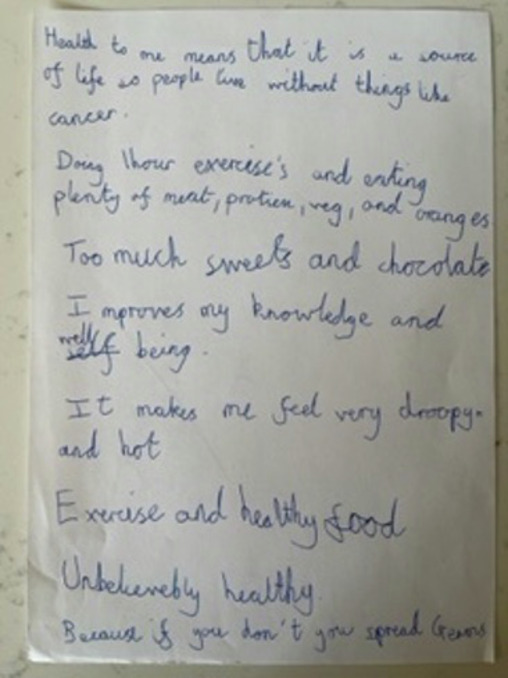 Health to me means that it is a source
of life so people live without things like
cancer.
Doing 1hour exercise's and eating
plenty of meat, protien, veg, and oranges
Too much sweets and chocolate
Improves my knowledge and
well self being.
It makes me feel very droopy
and hot
Exercise and healthy food
Unbelievebly healthy.
Because if you don't you spread Gerams